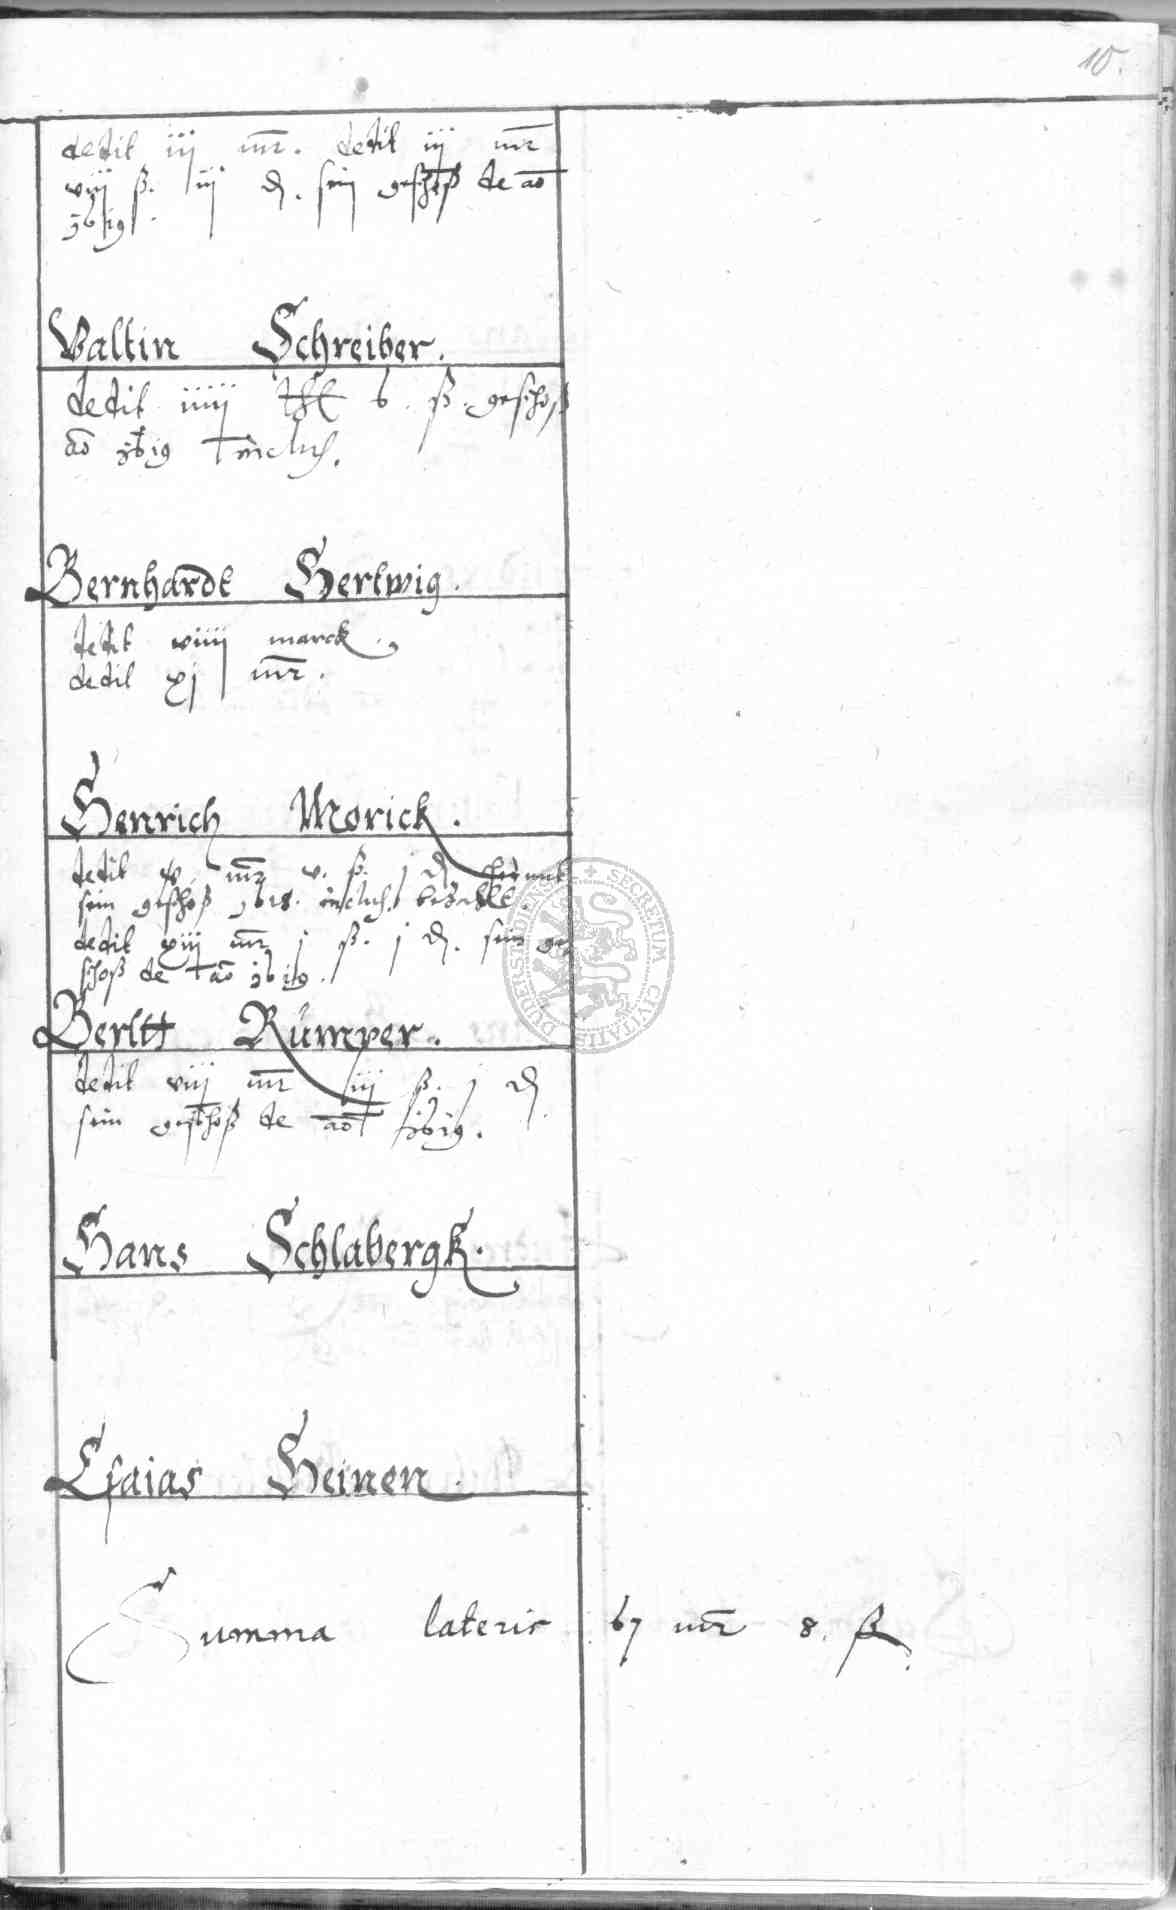 10.
dedit iij mr. dedit iij mr
viij ß. iij d. sein geschoß de ao
1619.
Valtin Schreiber.
dedit iiiij thl 6. ß. geschoß
ao 1619 inclus.
Bernhardt Hertwig.
dedit viiij marck.
dedit xj mr.
Henrich Morick.
dedit mr v. ß. j d. hermit
sein geschoß 1618. inclus. bezahlt.
dedit xiij mr j ß. j d. sein ge
schoß de ao 1619.
Berltt Rümper.
dedit viij mr iij ß. j d
sein geschoß de ao 1619.
Hans Schlabergk.
Esaias Heinen.
Summa lateris 67 mr 8. ß.
SECRETUM CIVITATIS DUDERSTADIENSIS